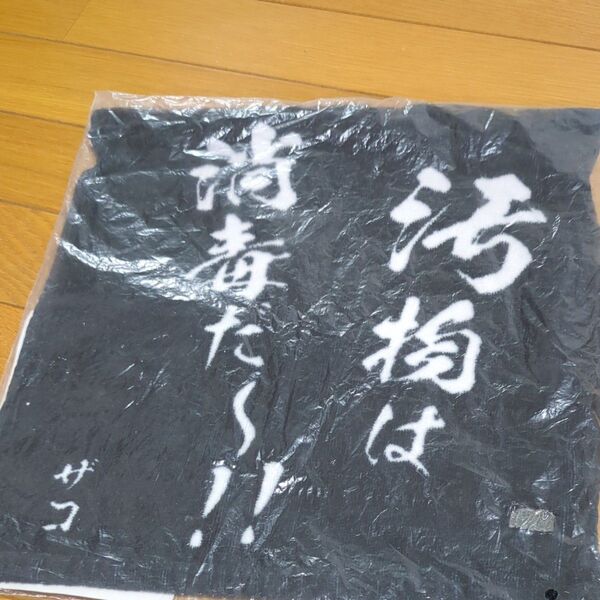 汚物は
消毒だ〜!!
ザコ